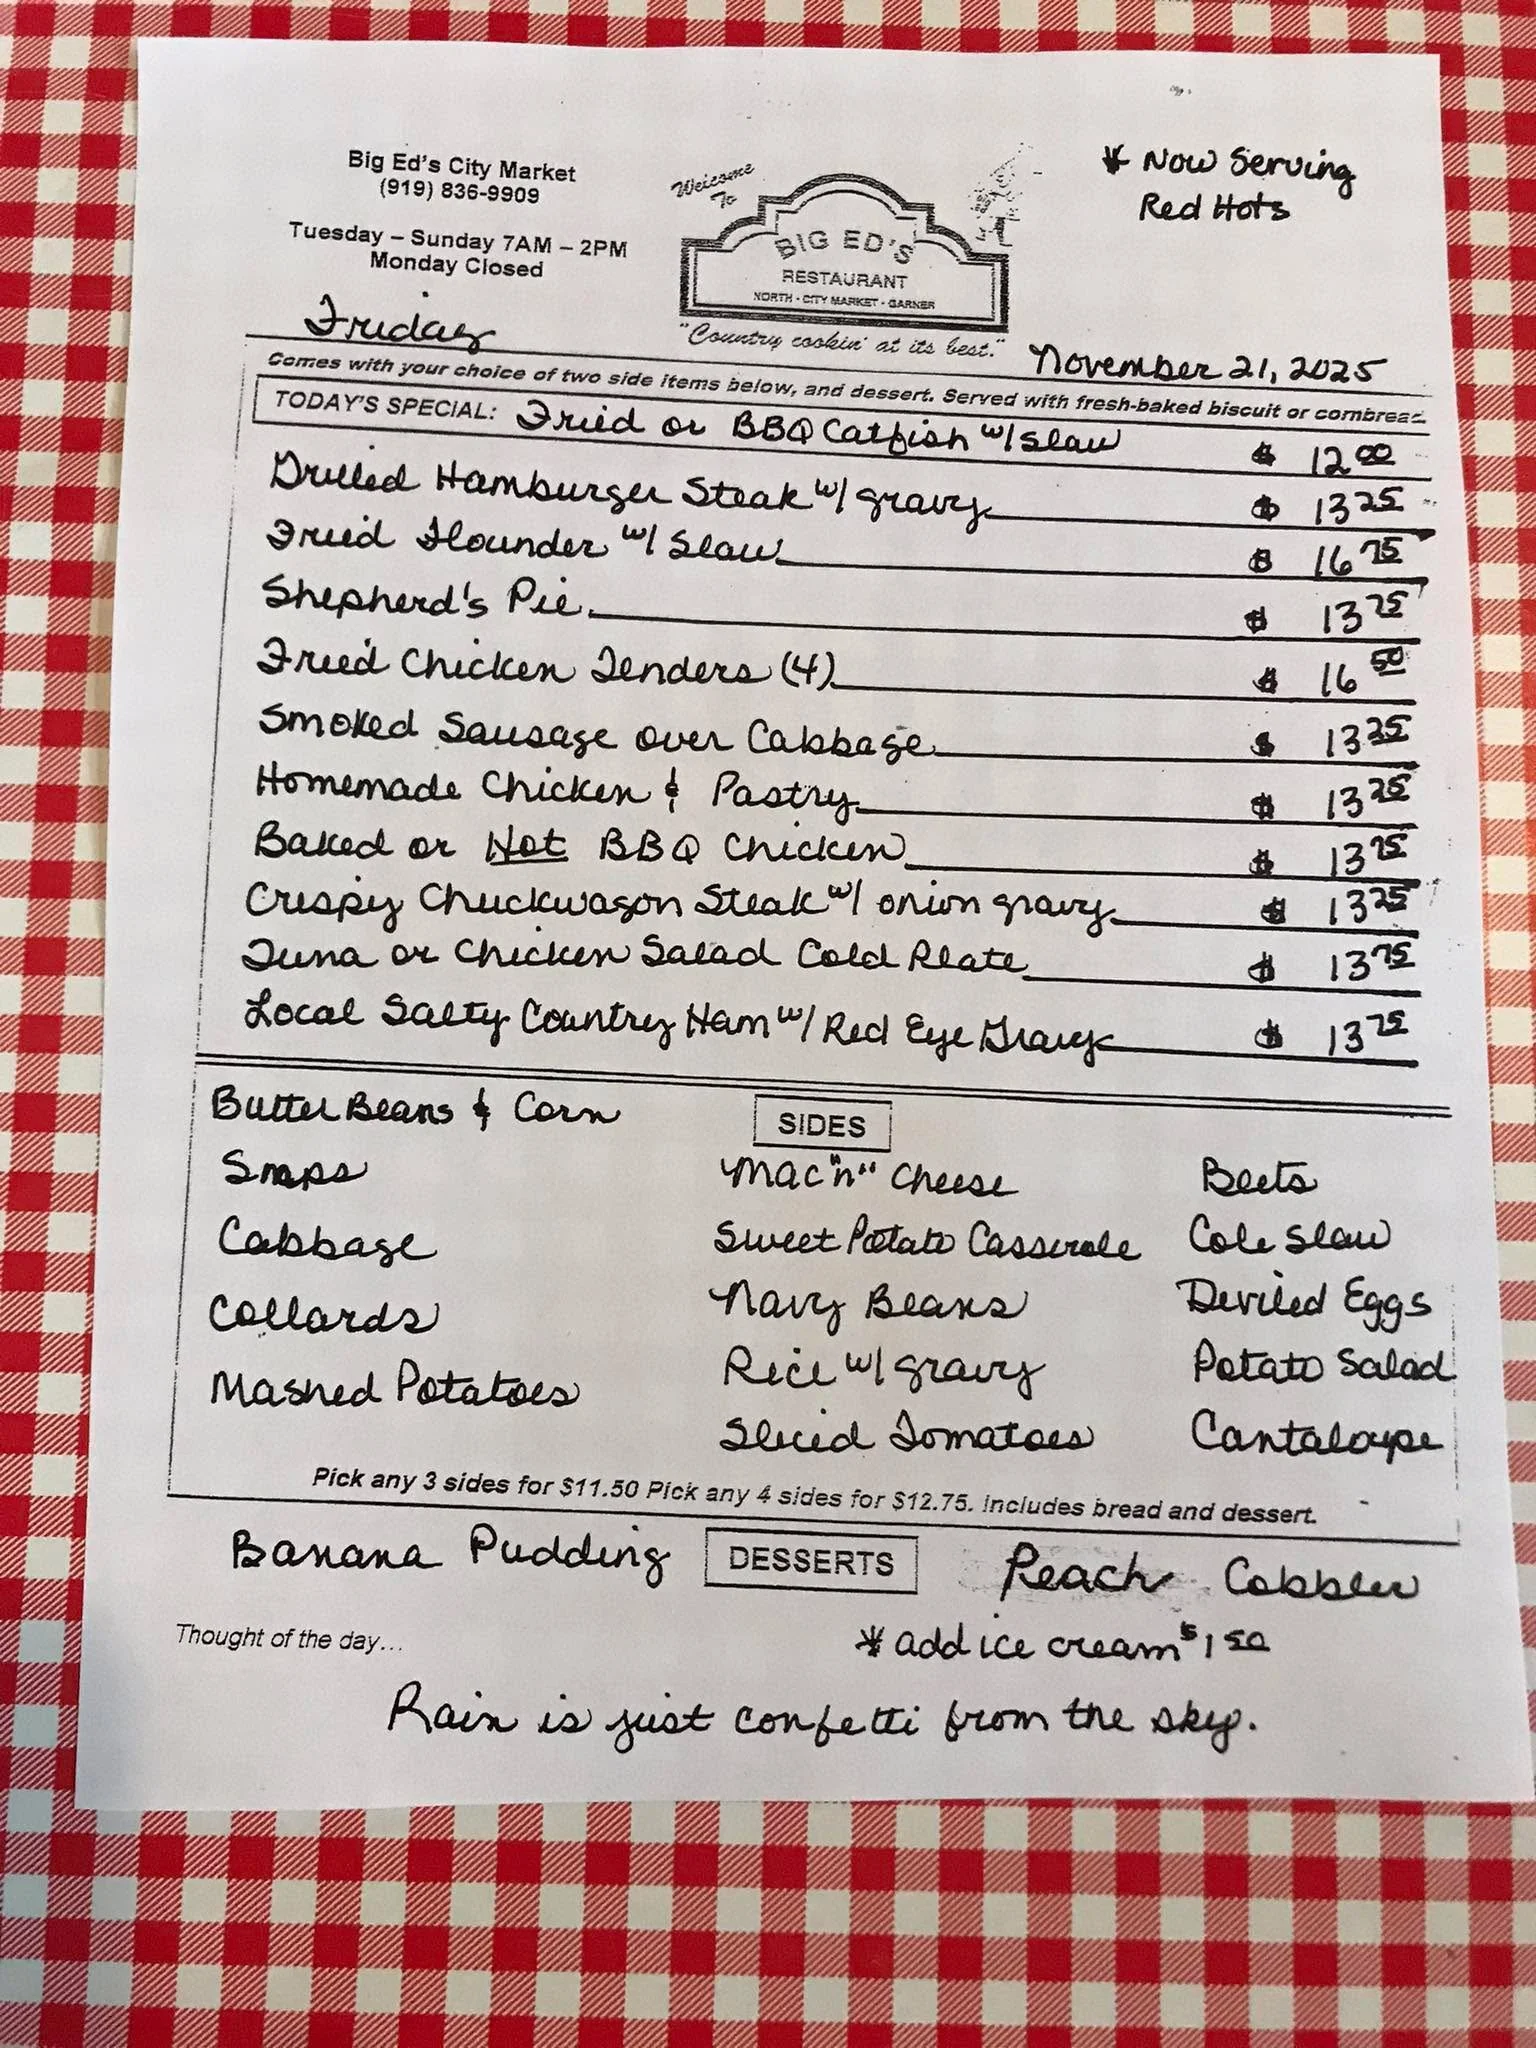 Big Ed's City Market
(919) 836-9909
Tuesday – Sunday 7AM – 2PM
Monday Closed
Welcome
To
BIG ED'S
RESTAURANT
NORTH - CITY MARKET - GARNER
"Country cookin' at its best."
* Now Serving
Red Hots
Friday
November 21, 2025
Comes with your choice of two side items below, and dessert. Served with fresh-baked biscuit or cornbread
TODAY'S SPECIAL: Fried or BBQ Catfish w/ Slaw $ 12 00
Grilled Hamburger Steak w/ gravy $ 13 25
Fried Flounder w/ Slaw $ 16 75
Shepherd's Pie $ 13 75
Fried Chicken Tenders (4) $ 16 50
Smoked Sausage over Cabbage $ 13 25
Homemade Chicken & Pastry $ 13 25
Baked or Hot BBQ Chicken $ 13 75
Crispy Chuckwagon Steak w/ onion gravy $ 13 25
Tuna or Chicken Salad Cold Plate $ 13 75
Local Salty Country Ham w/ Red Eye Gravy $ 13 75
SIDES
Butter Beans & Corn
Snaps
Cabbage
Collards
Mashed Potatoes
Mac "n" Cheese
Sweet Potato Casserole
Navy Beans
Rice w/ gravy
Sliced Tomatoes
Beets
Cole Slaw
Deviled Eggs
Potato Salad
Cantaloupe
Pick any 3 sides for $11.50 Pick any 4 sides for $12.75. Includes bread and dessert.
Banana Pudding DESSERTS Peach Cobbler
* add ice cream $1 50
Thought of the day...
Rain is just confetti from the sky.